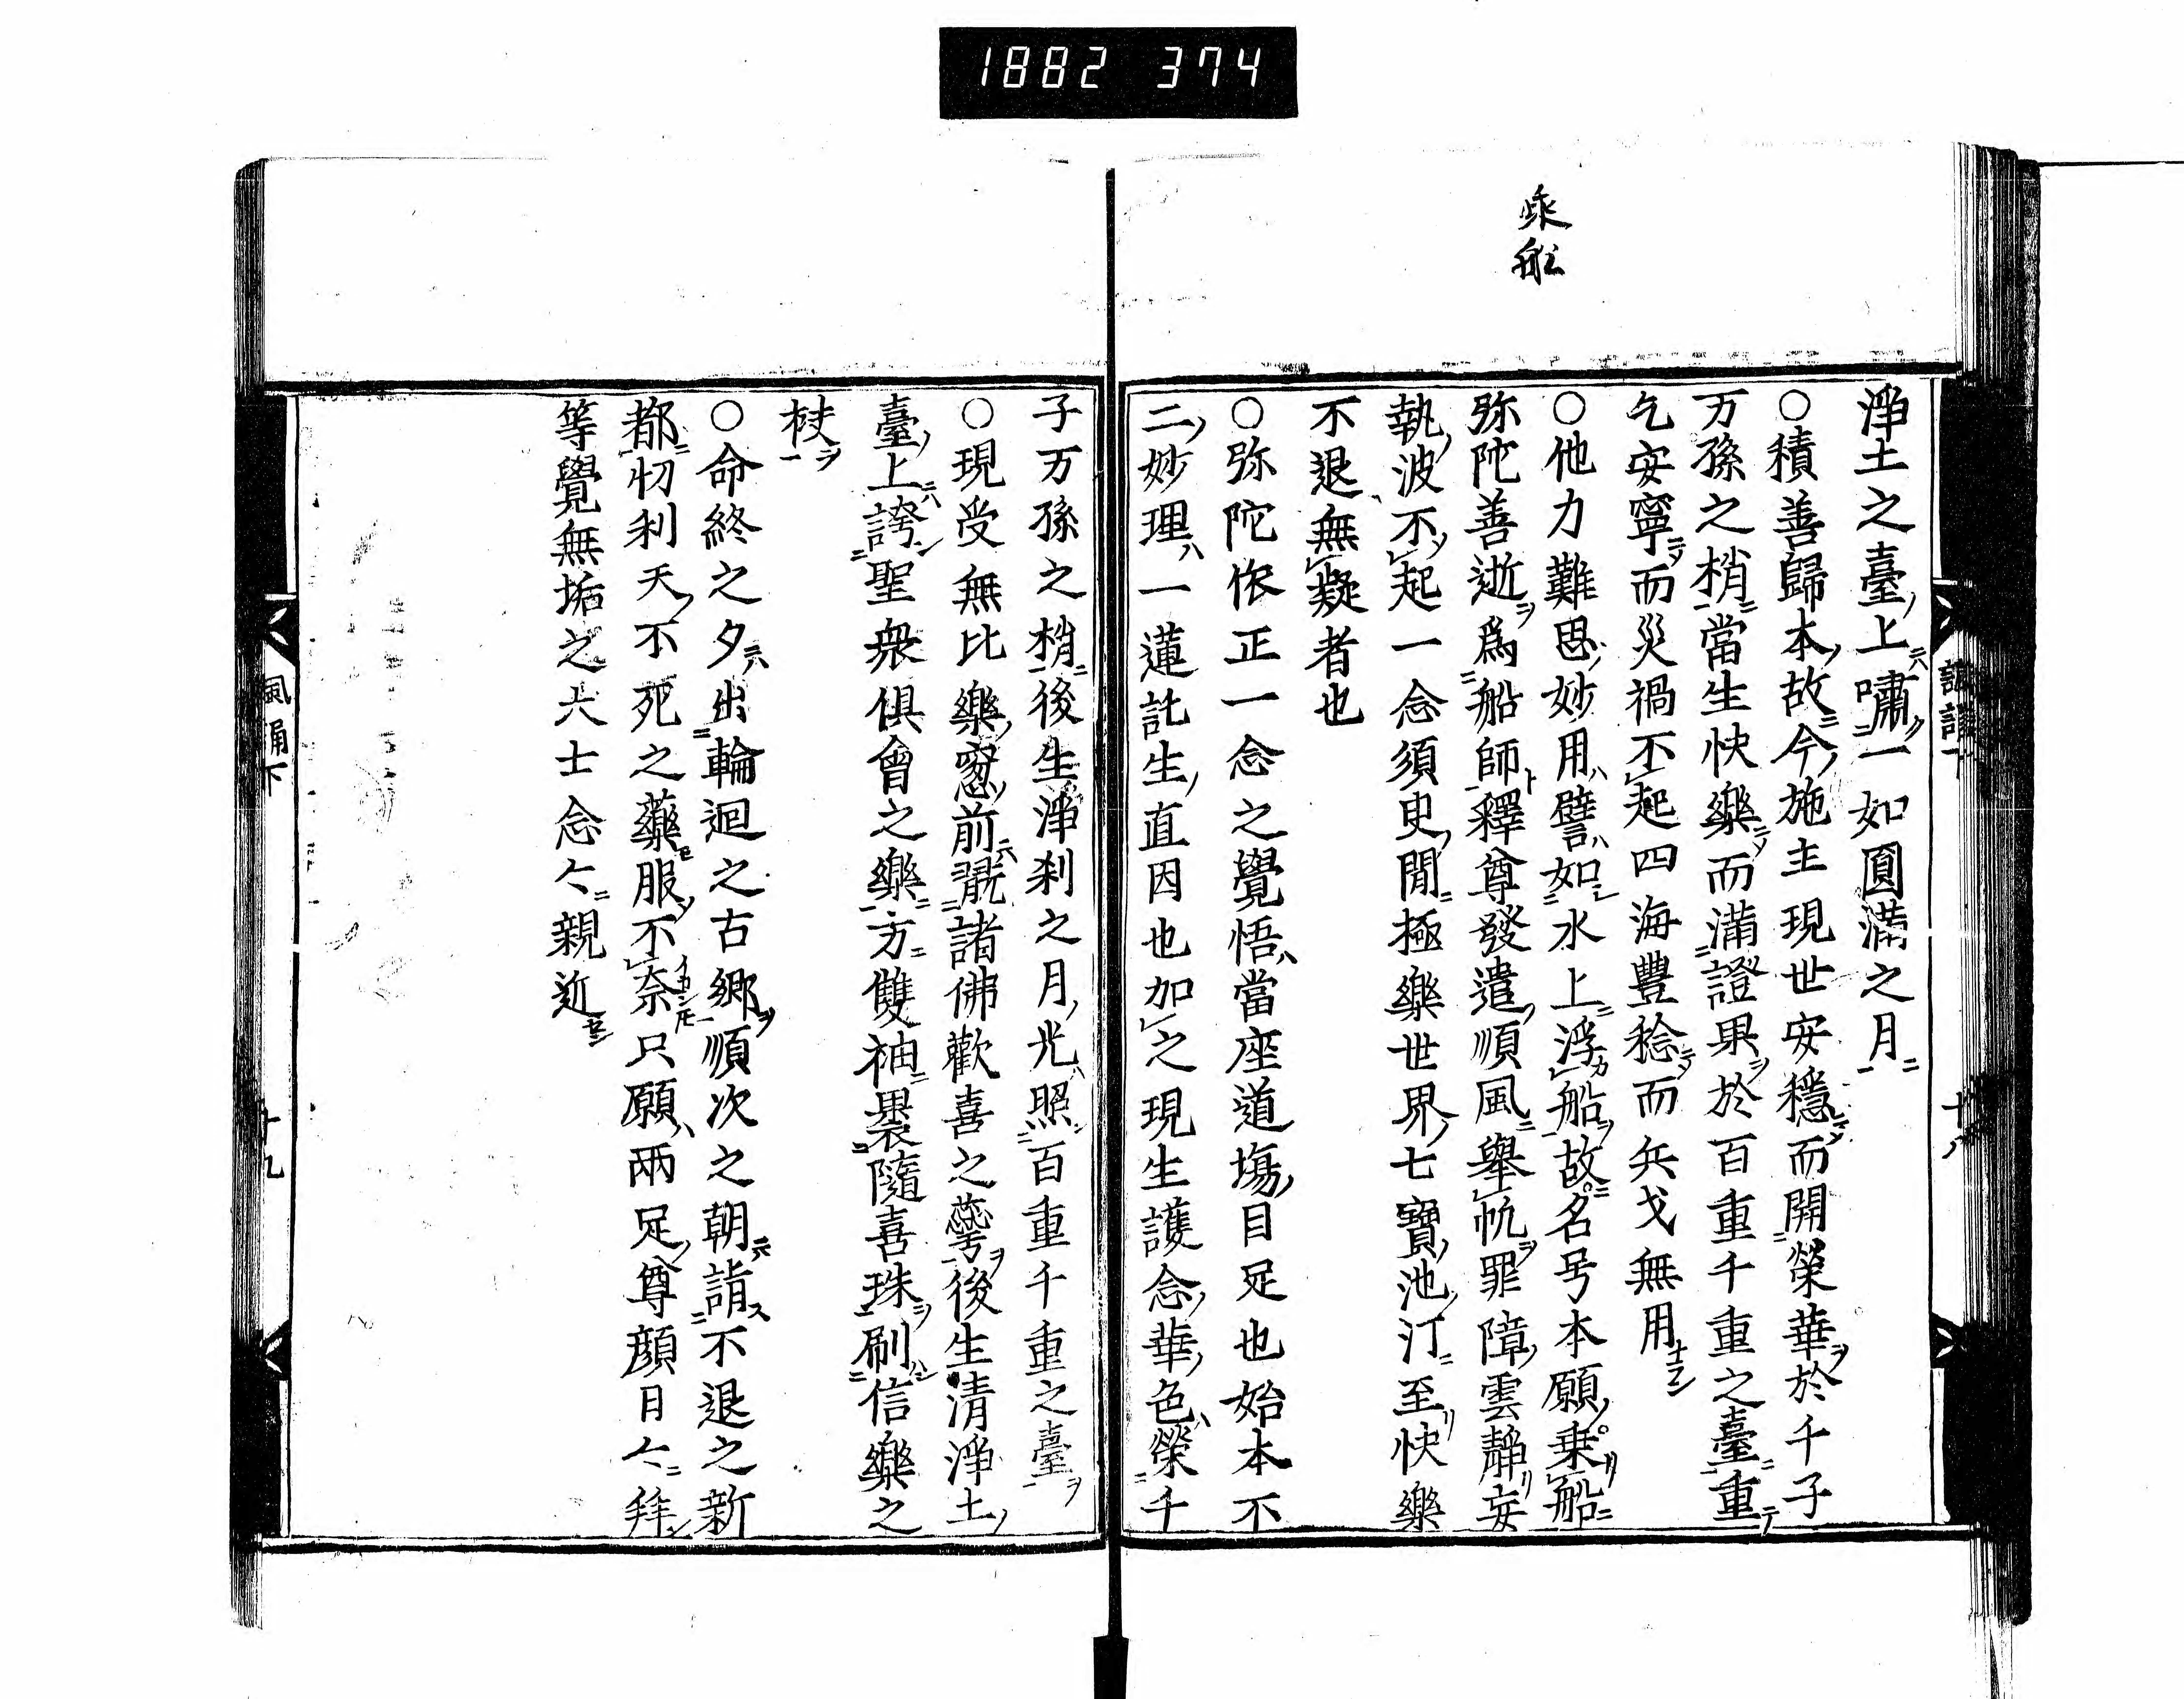 1882 374
乘船
淨土之臺ノ上ニハ嘯一如圓満之月ニ
○積善歸本ノ故ニ今ノ施主現世安穩ニシテ而開榮華ヲ於千子
万孫之梢ニ當生快樂ニシテ而満證果ヲ於百重千重之臺ニ重テ
乞安寧ニシテ而災禍不起四海豐稔ニシテ而兵戈無用ナラン
○他力難思ノ妙用ハ譬ハ如シ水上ニ浮カ船ヲ故ニ名号本願ノ乗リ船ニ
弥陀善逝ヲ爲船師ト釋尊發遣ノ順風ニ舉帆ヲ罪障ノ雲靜リ妄
執ノ波不ソ起一念須臾ノ間ニ極樂世界ノ七寶ノ池ノ汀ニ至リ快樂
不退無疑者也
○弥陀依正一念之覺悟ハ當座道場ノ目足也始本不
二ノ妙理ハ一蓮託生ノ直因也加之現生護念ノ華ノ色ハ榮千
子万孫之梢ニ後生淨刹之月ノ光ハ照百重千重之臺ヲ
○現受無比樂ノ窓ノ前ニハ翫諸佛歡喜之蘂ヲ後生清淨土ノ
臺ノ上ニハ誇聖衆俱會之樂ニ方ニ雙袖ニ褁隨喜珠ヲ刷信樂之
栻ヲ
○命終之夕ニハ出輪迴之古郷ヲ順次之朝ニハ詣ス不退之新
都ニ忉利天ノ不死之藥モ服ソ不奈イカントモ只願ハ兩足ノ尊顔日々ニ拜シ
等覺無垢之大士念々ニ親近セン
諷誦下
十八
風誦下
十九